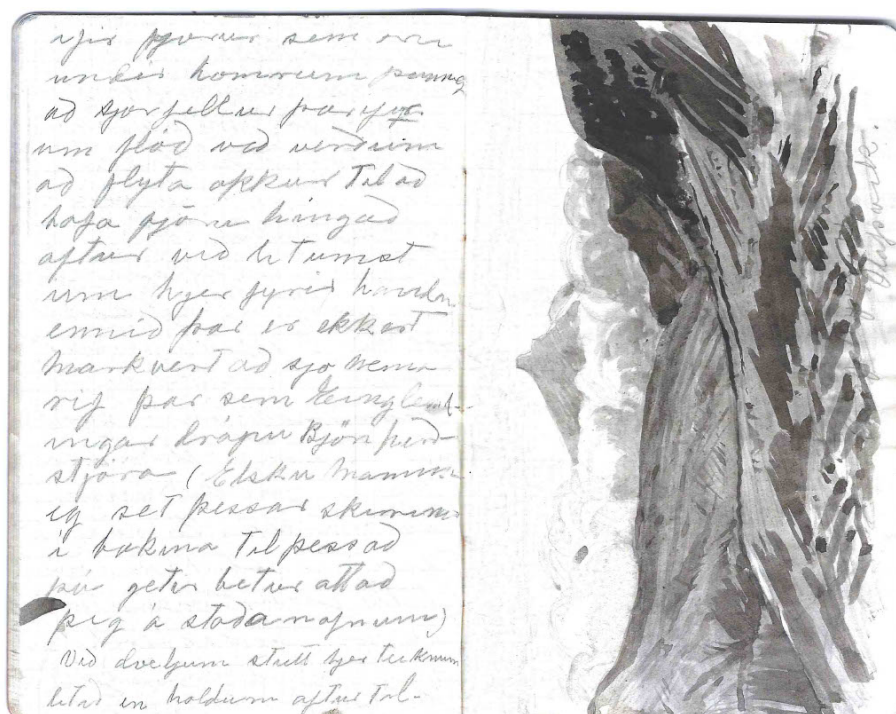 yfir fjörur sem eru
undir homrum þanng
að sjor fellur þar yfir
um flóð við verðum
að flyta okkur til að
hafa fjöru hingað
aftur við
um hjer fyrir handn
ennið þar er ekkert
markvert að sjo nema
rif þar sem Einglend-
ingar drápu Björn hird-
stjóra (Elsku Mamma
eg set þessar
i bokina til þess að
þú getir betur áttað
þig á staðanofnum)
Við dveljum stutt hjer teiknum
litið en holdum aftur til-
Olafsvik.